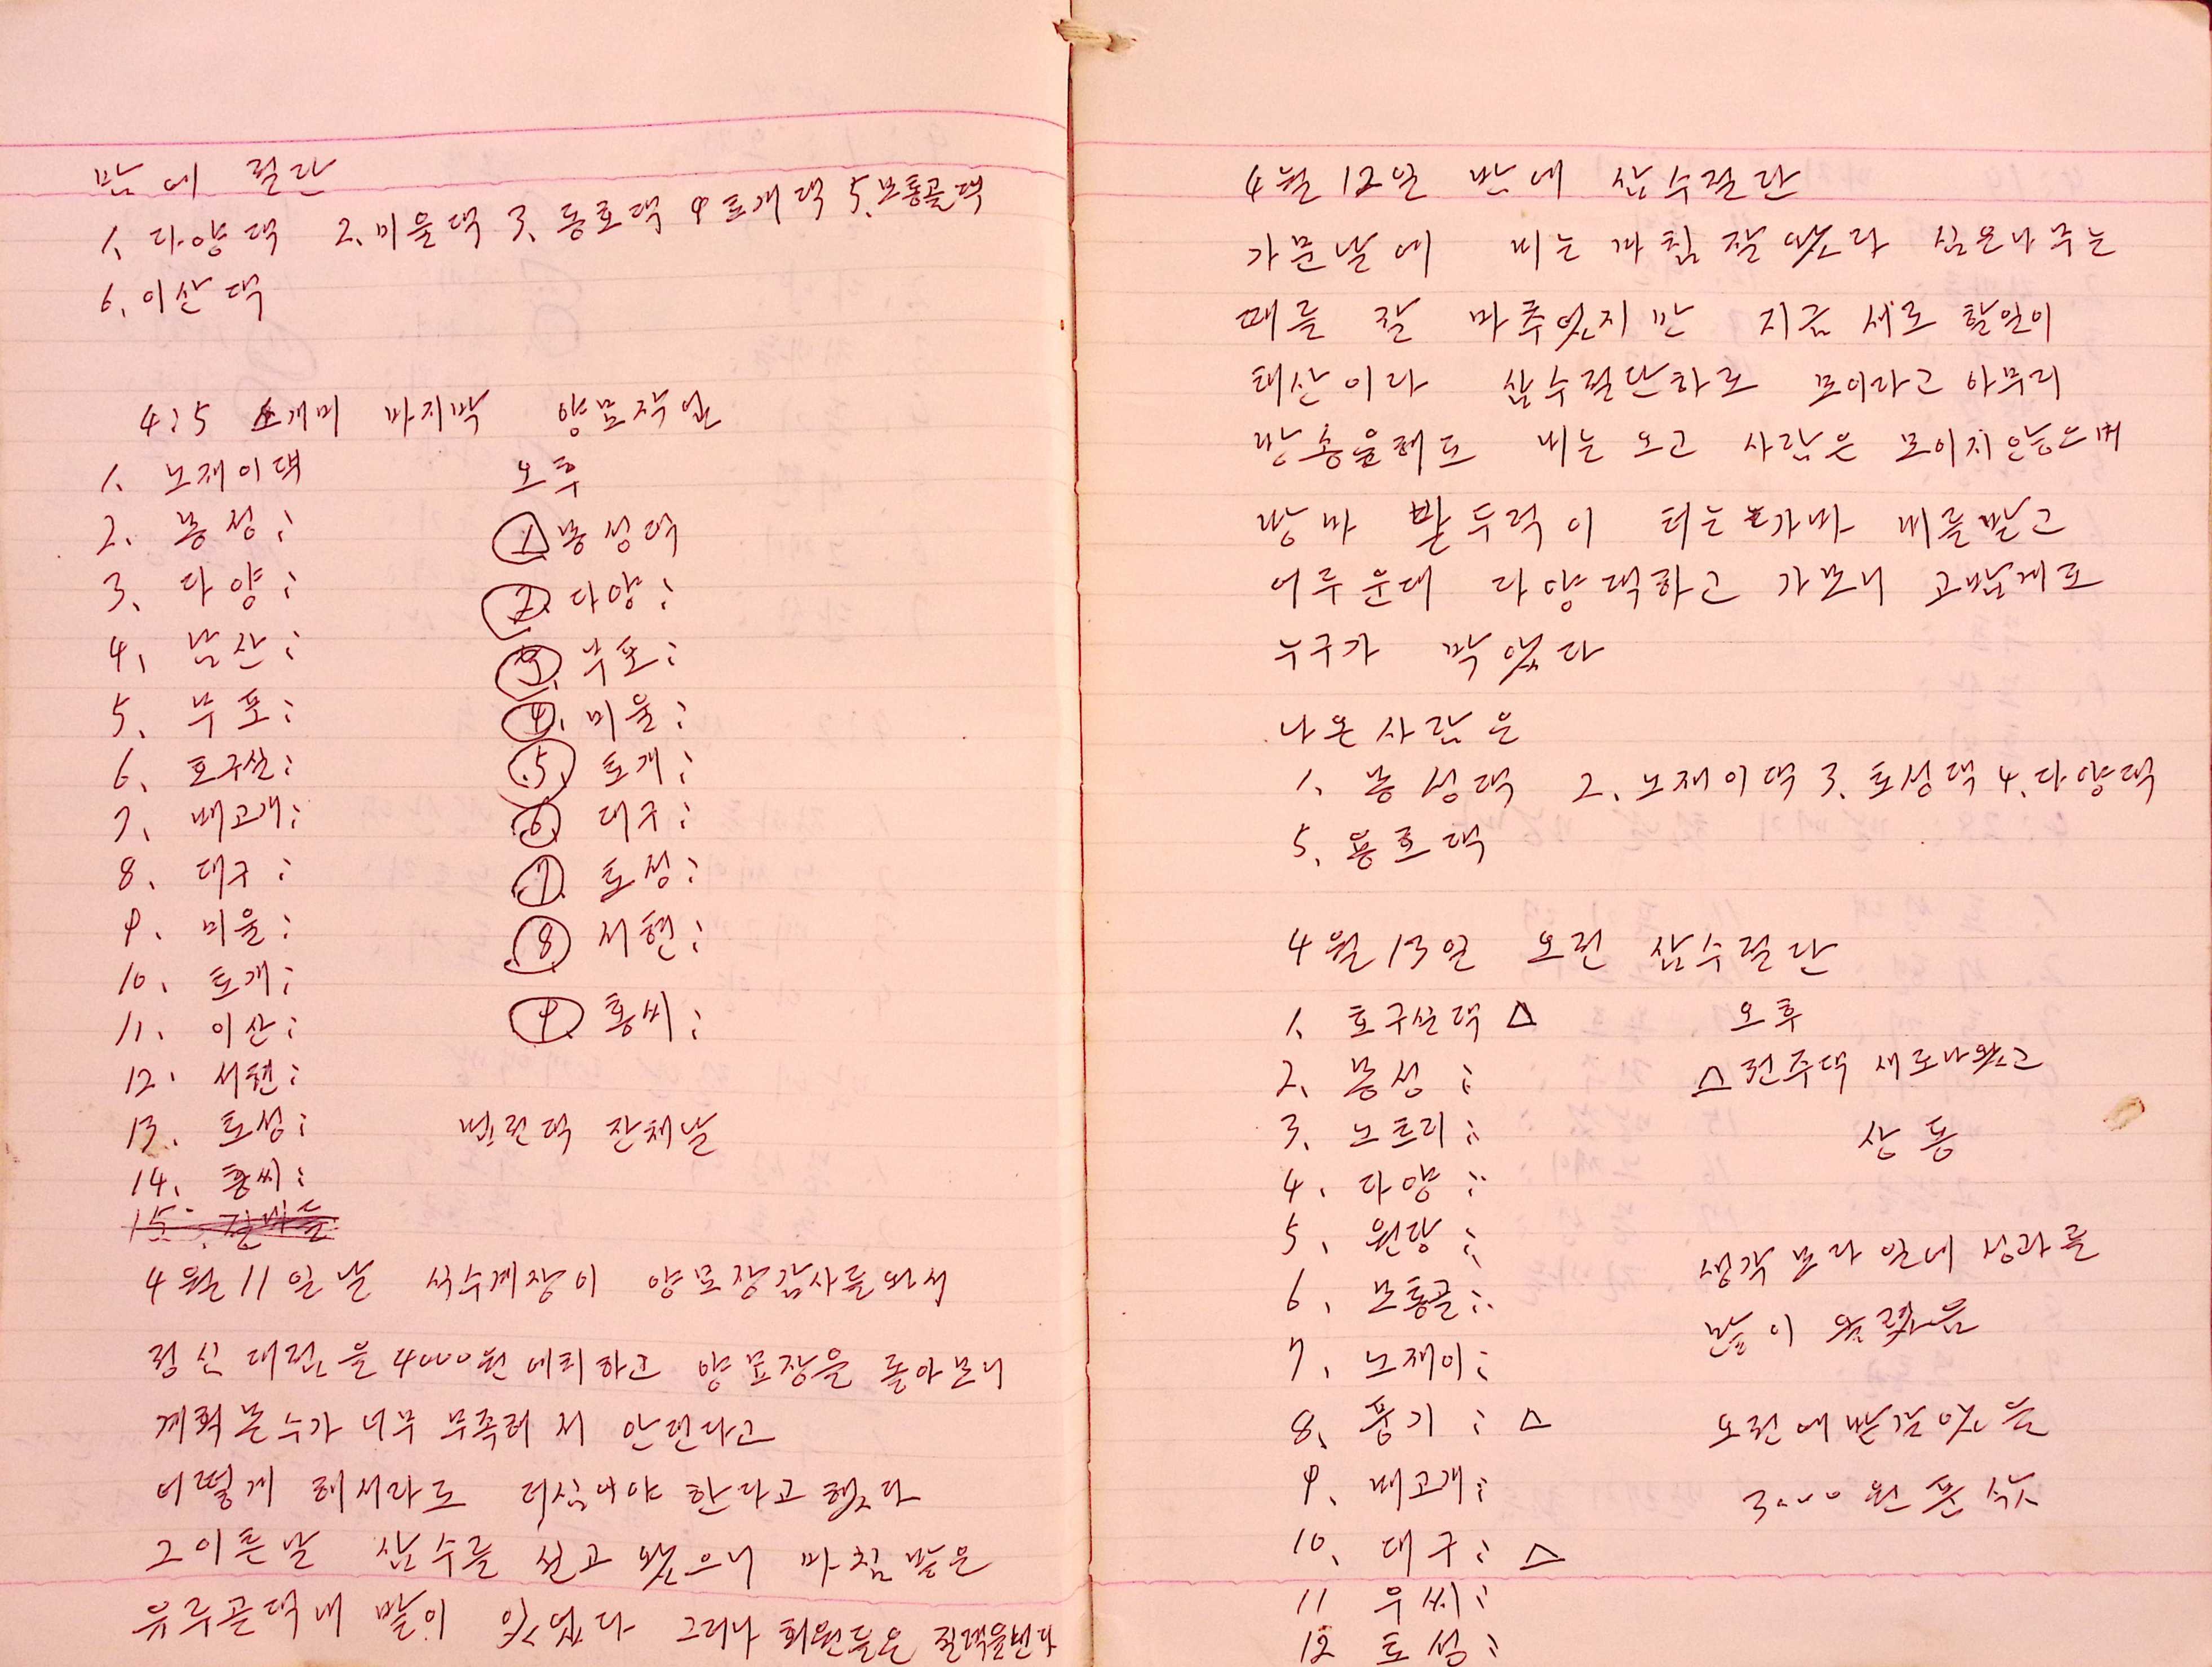 밤에 절단
1. 다양댁 2. 미울댁 3. 동호댁 4 토개댁 5. 모통골댁
6. 이산댁
4:5 소개미 마지막 양묘작업
1. 노재이댁
2. 농정:
3. 다양:
4. 남산:
5. 부포:
6. 호구실:
7. 배고개:
8. 대구:
9. 미울:
10. 토개:
11. 이산:
12. 서현:
13. 토성:
14. 홍씨:
오후
1 농성댁
2. 다양:
3. 부포:
4. 미울:
5. 토개:
6. 대구:
7. 토성:
8 서현:
9 홍씨:
잔체날
4월 11일날 식수계장이 양묘장감사를 와서
정신대전을 4000원 하고 양묘장을 돌아보니
계획본수가 너무 부족해서 안된다고
어떻게 해서라도 더심어야 한다고 했다
그이튼날 삽수를 실고 왔으니 마침 밭은
유루골댁네 밭이 있었다 그러나 회원들은
4월 12일 밤에 삽수절단
가문날에 비는 마침 잘 왔으나 심은나무는
때를 잘 마추었지만 지금 새로 할일이
태산이라 삽수절단하로 모이라고 아무리
방송을해도 비는 오고 사람은 모이지않으며
밭두럭이 터는 비를맞고
어두운대 다양댁하고 가보니 고맙게도
누구가 막었다
나온사람은
1. 농성댁 2. 노재이댁 3. 토성댁 4. 다양댁
5. 용호댁
4월 13일 오전 삽수절단
1. 호구실댁 △
2. 농성:
3. 노트리:
4. 다양:
5. 원당:
6. 모통골:
7. 노재이:
8. 풍기: △
9. 배고개:
10. 대구: △
11 우씨:
12 토성:
오후
△ 전주댁 새로나왔고
상동
생각보다 일네 성과를
많이 올렸음
오전에
3000원